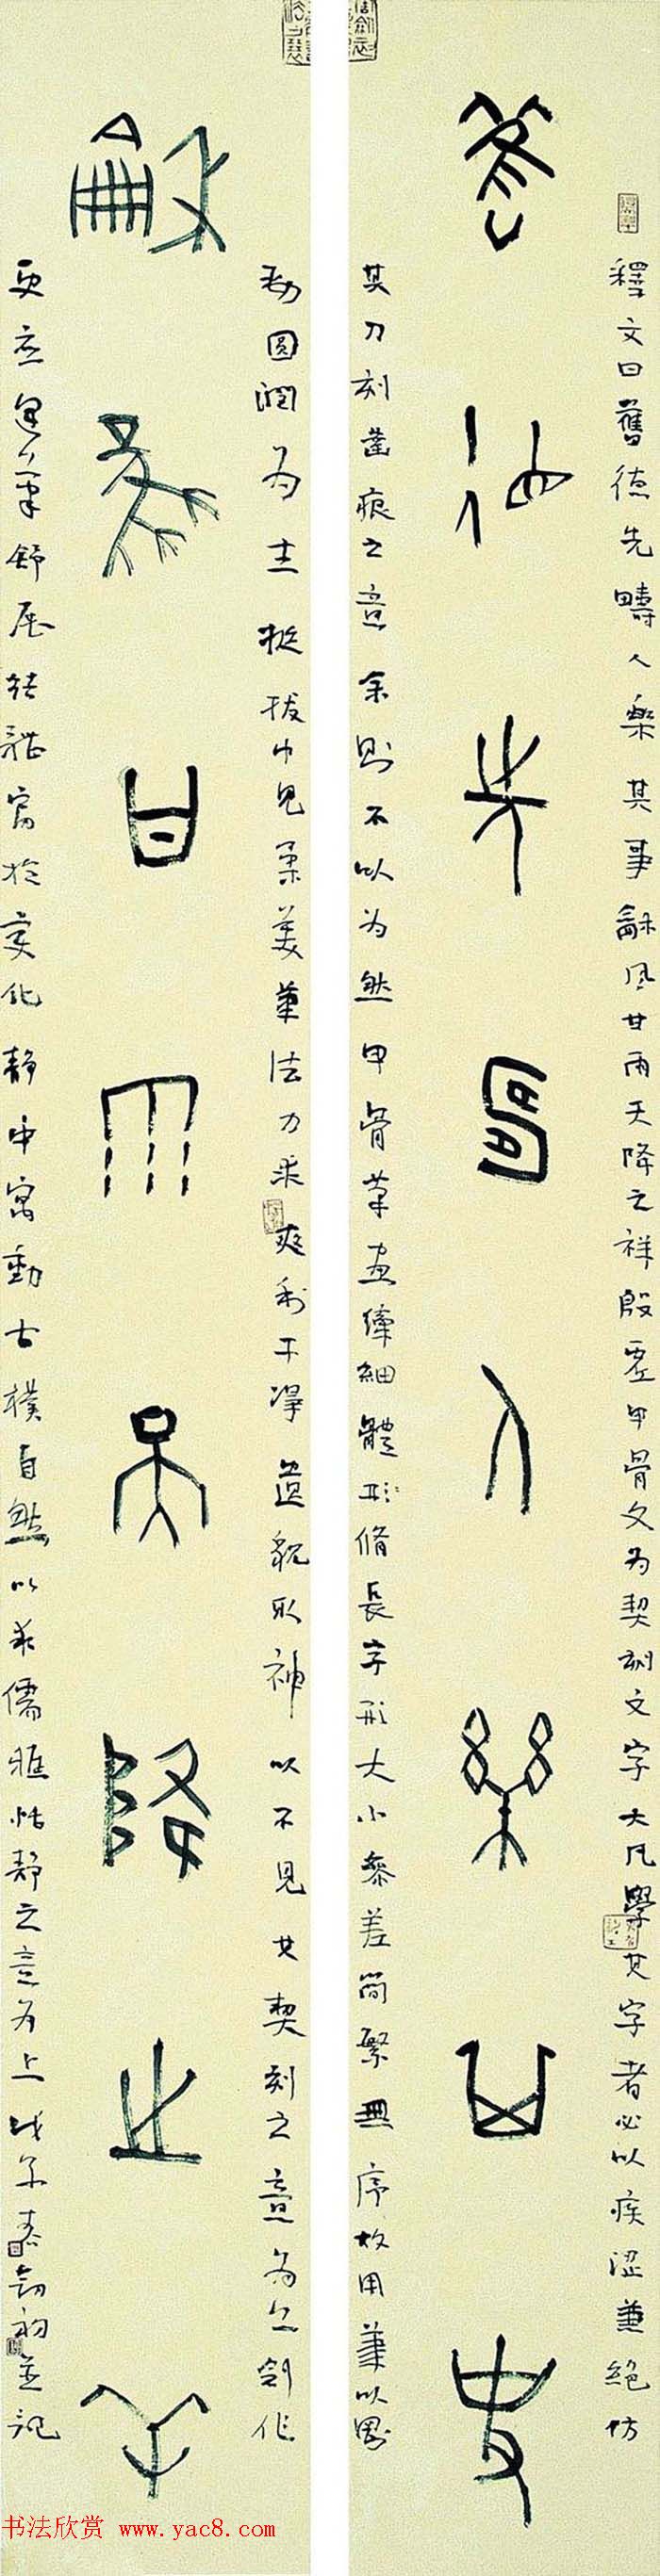 釋文曰舊德先疇人樂其事龢風甘雨天降之祥殷墟甲骨文為契刻文字大凡學其字者必以疾澀兼絕仿
舊德先疇人樂其事
其刀刻鑿痕之意余則不以為然甲骨筆畫纖細體形脩長字形大小參差簡繁無序故用筆以剛
勁圓潤為主挺拔中見柔美筆法力求爽利干淨遺貌取神以不見其契刻之意為上創作
龢風甘雨天降之祥
更應運筆舒展結體寓於變化靜中寓動古樸自然以求儒雅恬靜之意為上戊子春劍初並記
书法欣赏 www.yac8.com